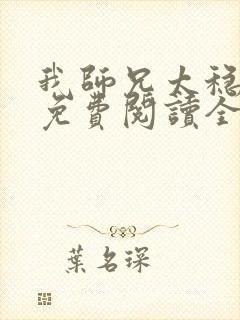 我師兄太穩
免費閱讀全
葉名琛